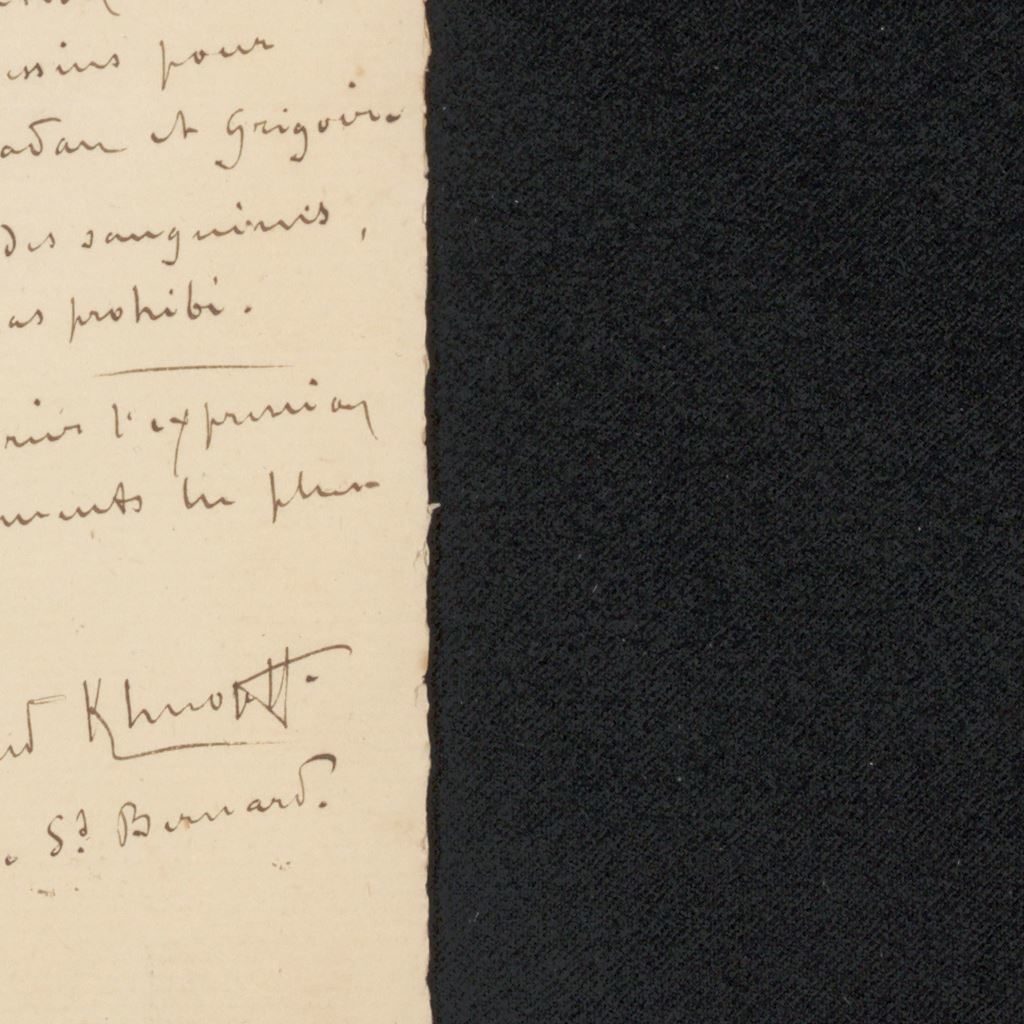 essins pour
adan et Grégoire
des sanguines,
as prohibé.
l'expression
ments les plus
Khnopff.
St Bernard.